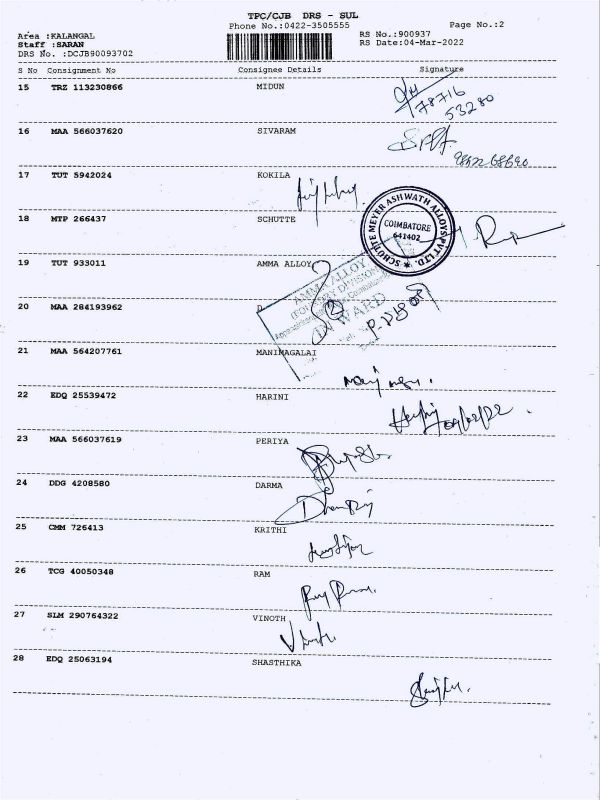 TPC/CJB DRS - SUL
Phone No.:0422-3505555 Page No.:2
Area :KALANGAL RS No.:900937
Staff :SARAN RS Date:04-Mar-2022
DRS No. :DCJB90093702
S No Consignment No Consignee Details Signature
15 TRZ 113230866 MIDUN
78716
53280
16 MAA 566037620 SIVARAM
17 TUT 5942024 KOKILA
18 MTP 266437 SCHUTTE
SCHUTTE MEYER ASHWATH ALLOYS PVT LTD.
COIMBATORE
641402
19 TUT 933011 AMMA ALLOY
AMMA ALLOY
(FOUNDRY DIVISION)
INWARD
20 MAA 284193962 D
21 MAA 564207761 MANIMAGALAI
22 EDQ 25539472 HARINI
23 MAA 566037619 PERIYA
24 DDG 4208580 DARMA
25 CMM 726413 KRITHI
26 TCG 40050348 RAM
27 SLM 290764322 VINOTH
28 EDQ 25063194 SHASTHIKA